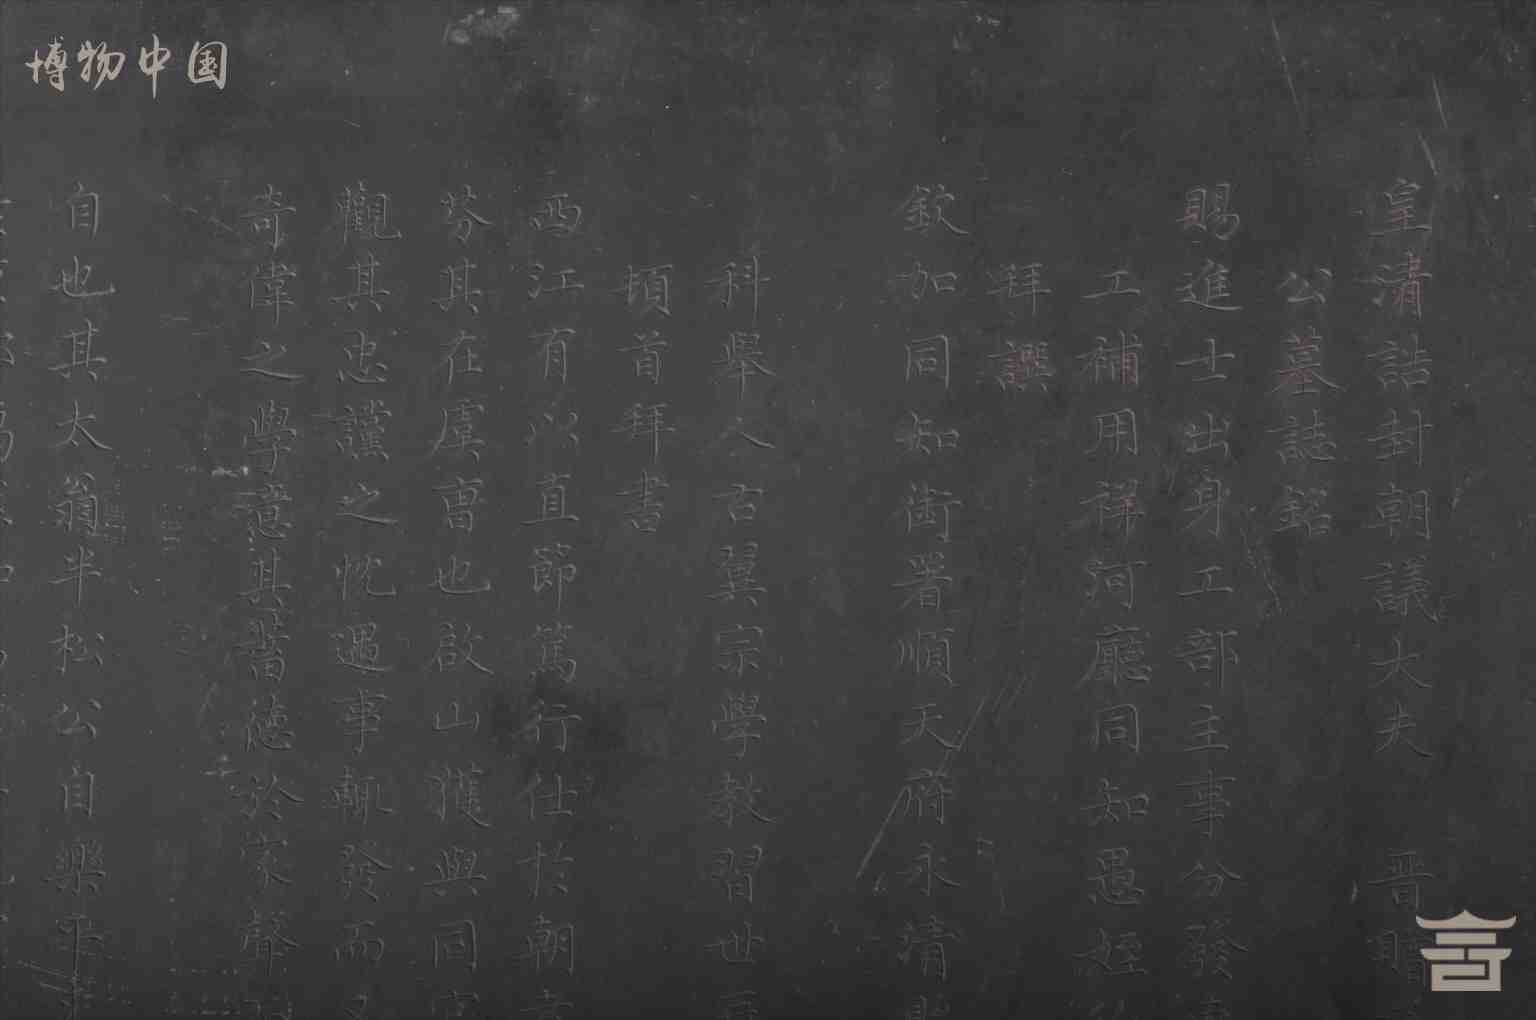 博物中国
皇清誥封朝議大夫 晋贈
公墓誌銘
賜進士出身工部主事分發
工補用祥河廳同知愚姪
拜撰
欽加同知銜署順天府永清
科舉人右翼宗學教習世
頓首拜書
西江有以直節篤行仕於朝
芬其在虞曹也啟山獲與同
觀其忠讜之忱遇事輒發而
奇偉之學意其蓄德於家聲
自也其太翁半松公自樂平